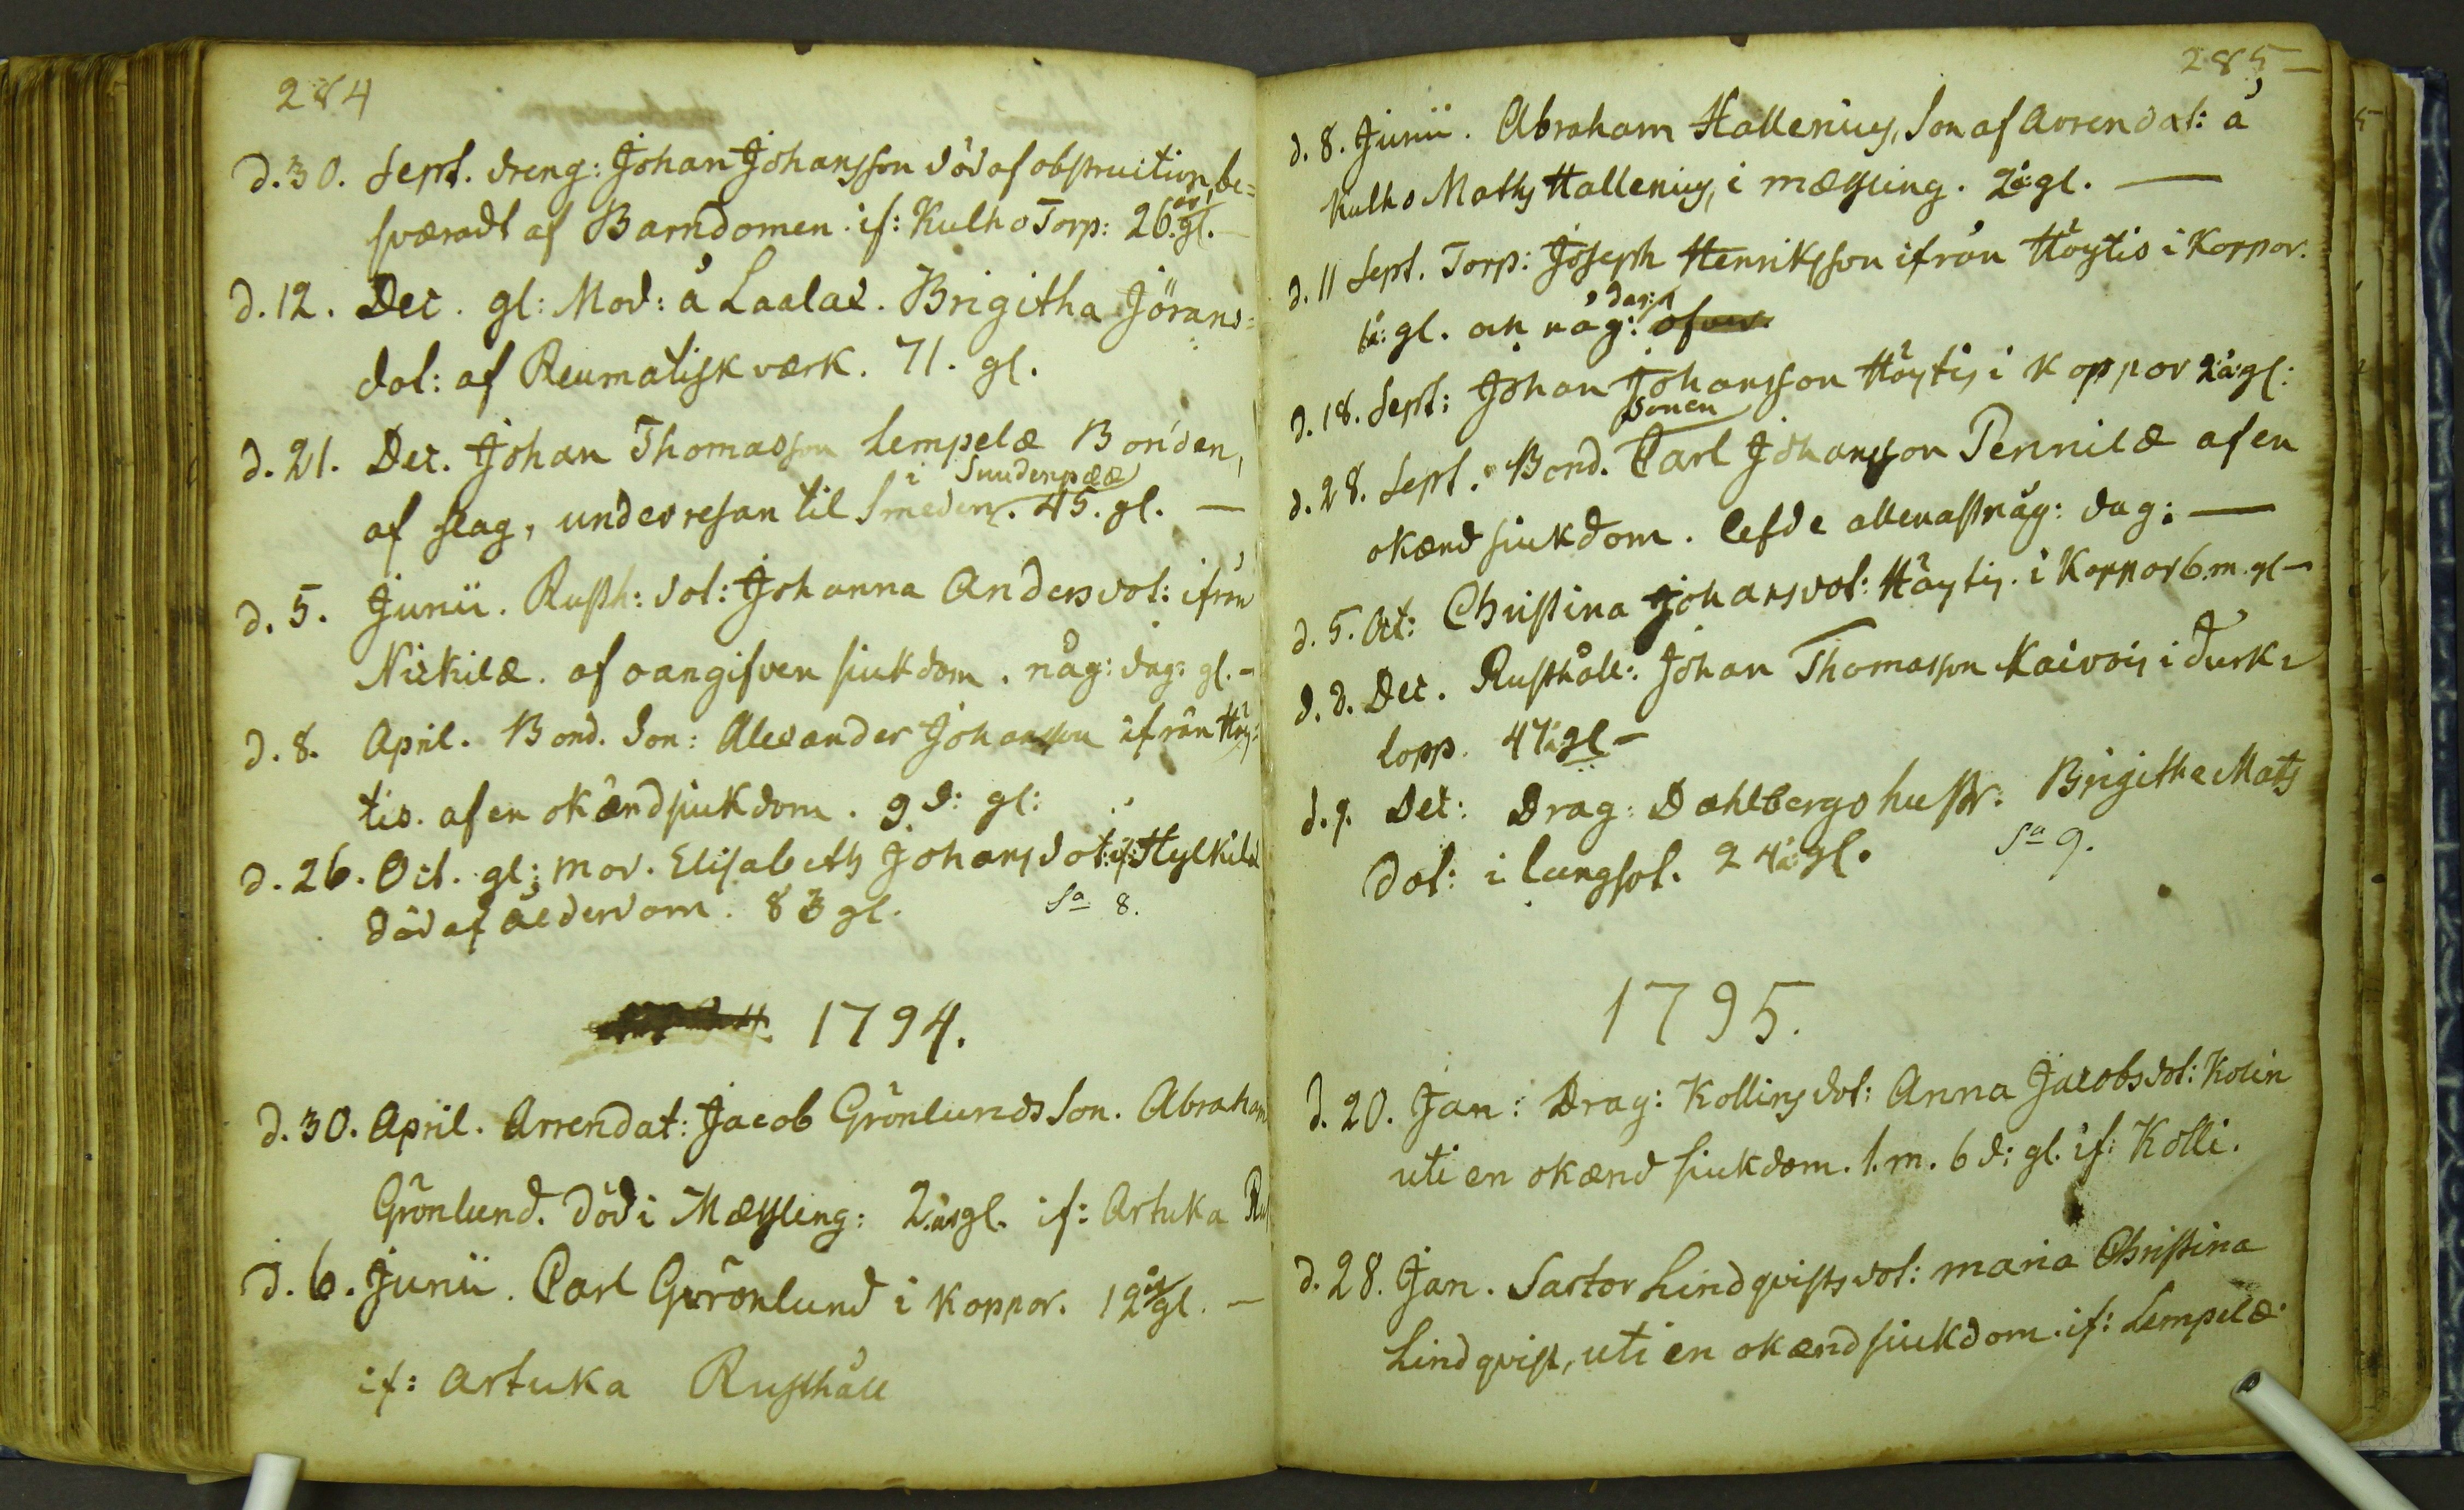 284
d. 30. Sept. dreng: Johan Johansson död af obstruction, be=
sværadt af Barndomen. if: Kulho Torp: 26. år gl.
d. 12. Dec. gl: Mod: å Laalax. Brigitha Jörans=
dot: af Reumatisk værk. 71. gl.
d. 21. Dec. Johan Thomasson Lempelæ Bonden,
i Suudenpææ
af slag, under resan til Smeden. 45. gl. —
d. 5. Junii. Rusth: dot: Johanna Andersdot: ifrån
Niskilæ. af oangifven siukdom. någ: dag: gl. -
d. 8. April. Bond. Son: Alexander Johansson ifrån Höy=
tis. af en okænd siukdom. 9 d: gl:
d. 26. Oct. gl; mor. Elisabeth Johansdot: if: Hylkilæ
död af ålderdom. 83 gl. Sa 8.
1794.
d. 30. April. Arrendat: Jacob Grönlunds Son. Abraham
Grönlund. död i Mæssling: 2. år gl. if: Artuka
d. 6. Junii. Carl Grönlund i Koppor. 12 år gl. —
if: Artuka Rusthåll
285 —
d. 8. Junii. Abraham Hallenius, Son af Arrendat: å
Kulho Maths Hallenius, i mæssling. 2 å: gl. —
d. 11 Sept. Torp: Joseph Henriksson ifrån Höytis i Koppor.
dag:
6 å: gl. och någ: ofver.
d. 18. Sept: Johan Johansson Höytis i Koppor 2 å: gl:
Sonen
d. 28. Sept. Bond. Carl Johansson Pennilæ af en
okænd siukdom. lefde allenast någ: dag: —
d. 5. Oct: Christina Johansdot: Höytis. i Koppor 6. m. gl —
d. d. Dec. Rusthåll: Johan Thomasson Kaivois i Durk=
lopp. 47 å: gl —
d. 9. Dec: Drag: Dahlbergs hustr: Brigitha Mats
dot: i lungsot. 24 å: gl. Sa 9.
1795.
d. 20. Jan: Drag: Kollins dot: Anna Jacobsdot: Kolin
uti en okænd siukdom. 1. m. 6 d: gl. if: Kolli.
d. 28. Jan. Sactor Lindqvists dot: maria Christina
Lindqvist, uti en okænd siukdom. if: Lempelæ